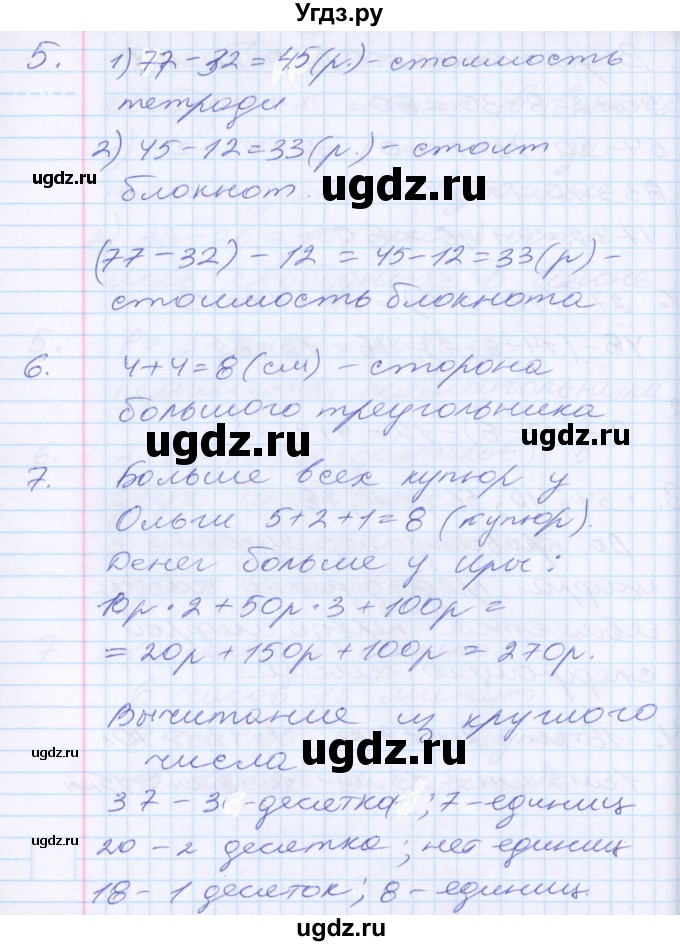 Угдз.ру
5. 1) 77 - 32 = 45 (р.) - стоимость
тетради
2) 45 - 12 = 33 (р.) - стоит
блокнот.
ugdz.ru
ugdz.ru
ugdz.ru
(77 - 32) - 12 = 45 - 12 = 33 (р) -
стоимость блокнота
6. 4 + 4 = 8 (см) - сторона
большого треугольника
ugdz.ru
ugdz.ru
7. Больше всех купюр у
Ольги 5 + 2 + 1 = 8 (купюр).
Денег больше у Иры:
10р · 2 + 50р · 3 + 100р =
= 20р + 150р + 100р = 270р.
Вычитание из круглого
ugdz.ru
ugdz.ru
числа
37 - 3 -десетка ; 7 - единиц
20 - 2 десетка ; нет единиц
ugdz.ru
18 - 1 десеток ; 8 - единиц.
ugdz.ru